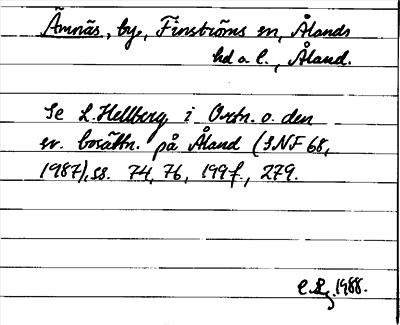 Ämnäs, by, Finströms sn, Ålands
hd o. l., Åland.
Se L. Hellberg i Ortn. o. den
sv. bosättn. på Åland (SNF 68,
1987), ss. 74, 76, 199f., 279.
1988.